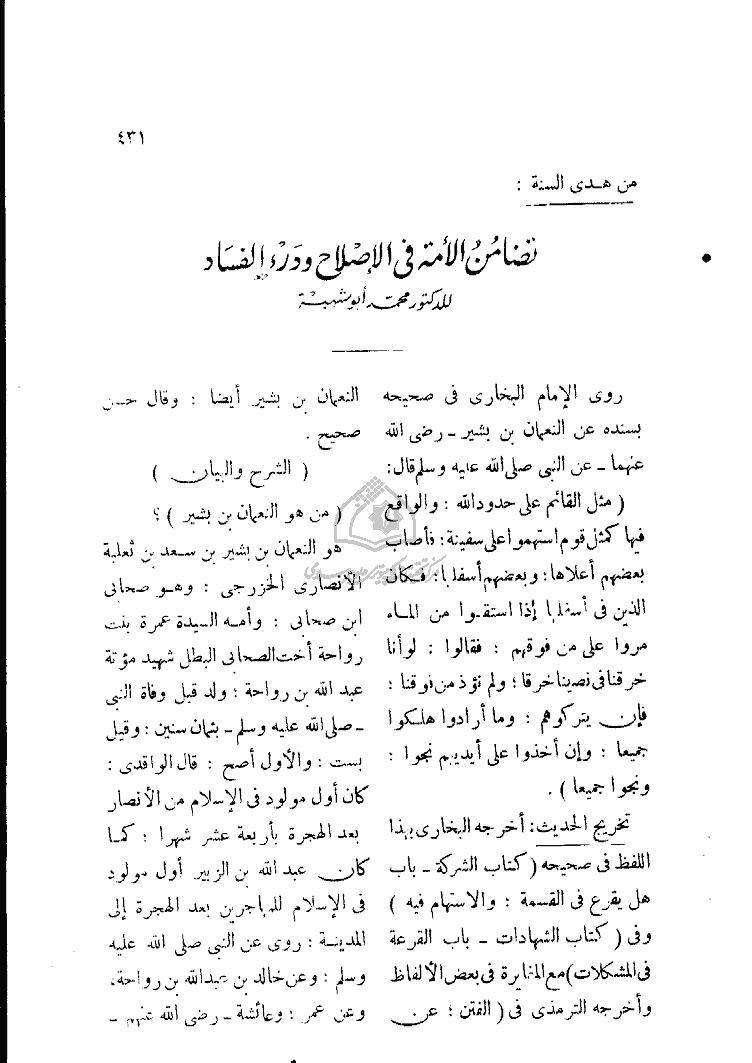 ٤٣١
من هدى السنة :
تضامُنُ الأمة فى الإصلاح ودَرْء الفسَاد
للدكتور محمد أبو شهبة
روى الإمام البخارى فى صحيحه
بسنده عن النعمان بن بشير ـ رضى الله
عنهما ـ عن النبى صلى الله عليه وسلم قال:
( مثل القائم على حدود الله : والواقع
فيها كمثل قوم استهموا على سفينة : فأصاب
بعضهم أعلاها : وبعضهم أسفلها : فكان
الذين فى أسفلها إذا استقوا من الماء
مروا على من فوقهم : فقالوا : لو أنا
خرقنا فى نصيبنا خرقا : ولم نؤذ من فوقنا :
فإن يتركوهم : وما أرادوا هلكوا
جميعا : وإن أخذوا على أيديهم نجوا :
ونجوا جميعا ) .
تخريج الحديث : أخرجه البخارى بهذا
اللفظ فى صحيحه ( كتاب الشركة ـ باب
هل يقرع فى القسمة : والاستهام فيه )
وفى ( كتاب الشهادات ـ باب القرعة
فى المشكلات ) مع المغايرة فى بعض الألفاظ
وأخرجه الترمذى فى ( الفتن : عن
النعمان بن بشير أيضا : وقال حسن
صحيح .
( الشرح والبيان )
( من هو النعمان بن بشير ) ؟
هو النعمان بن بشير بن سعد بن ثعلبة
الأنصارى الخزرجى : وهو صحابى
ابن صحابى : وأمه السيدة عمرة بنت
رواحة أخت الصحابى البطل شهيد مؤتة
عبد الله بن رواحة : ولد قبل وفاة النبى
ـ صلى الله عليه وسلم ـ بثمان سنين : وقيل
بست : والأول أصح : قال الواقدى :
كان أول مولود فى الإسلام من الأنصار
بعد الهجرة بأربعة عشر شهرا : كما
كان عبد الله بن الزبير أول مولود
فى الإسلام للمهاجرين بعد الهجرة إلى
المدينة : روى عن النبى صلى الله عليه
وسلم : وعن خالد بن عبد الله بن رواحة،
وعن عمر : وعائشة ـ رضى الله عنهم ـ